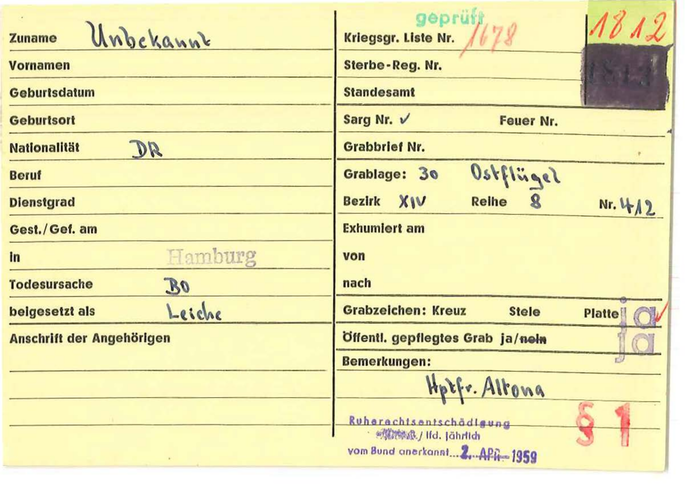 Zuname Unbekannt
Vornamen
Geburtsdatum
Geburtsort
Nationalität DR
Beruf
Dienstgrad
Gest./Gef. am
in Hamburg
Todesursache BO
beigesetzt als Leiche
Anschrift der Angehörigen
geprüft
1812
Kriegsgr. Liste Nr. 1678
Sterbe-Reg. Nr.
Standesamt
Sarg Nr. ✓ Feuer Nr.
Grabbrief Nr.
Grablage: 30 Ostflügel
Bezirk XIV Reihe 8 Nr. 412
Exhumiert am
von
nach
Grabzeichen: Kreuz Stele Platte ja ✓
Öffentl. gepflegtes Grab ja/nein ja
Bemerkungen:
Hptfr. Altona
§ 1
Ruherechtsentschädigung
/ lfd. jährlich
vom Bund anerkannt 2. APR. 1959